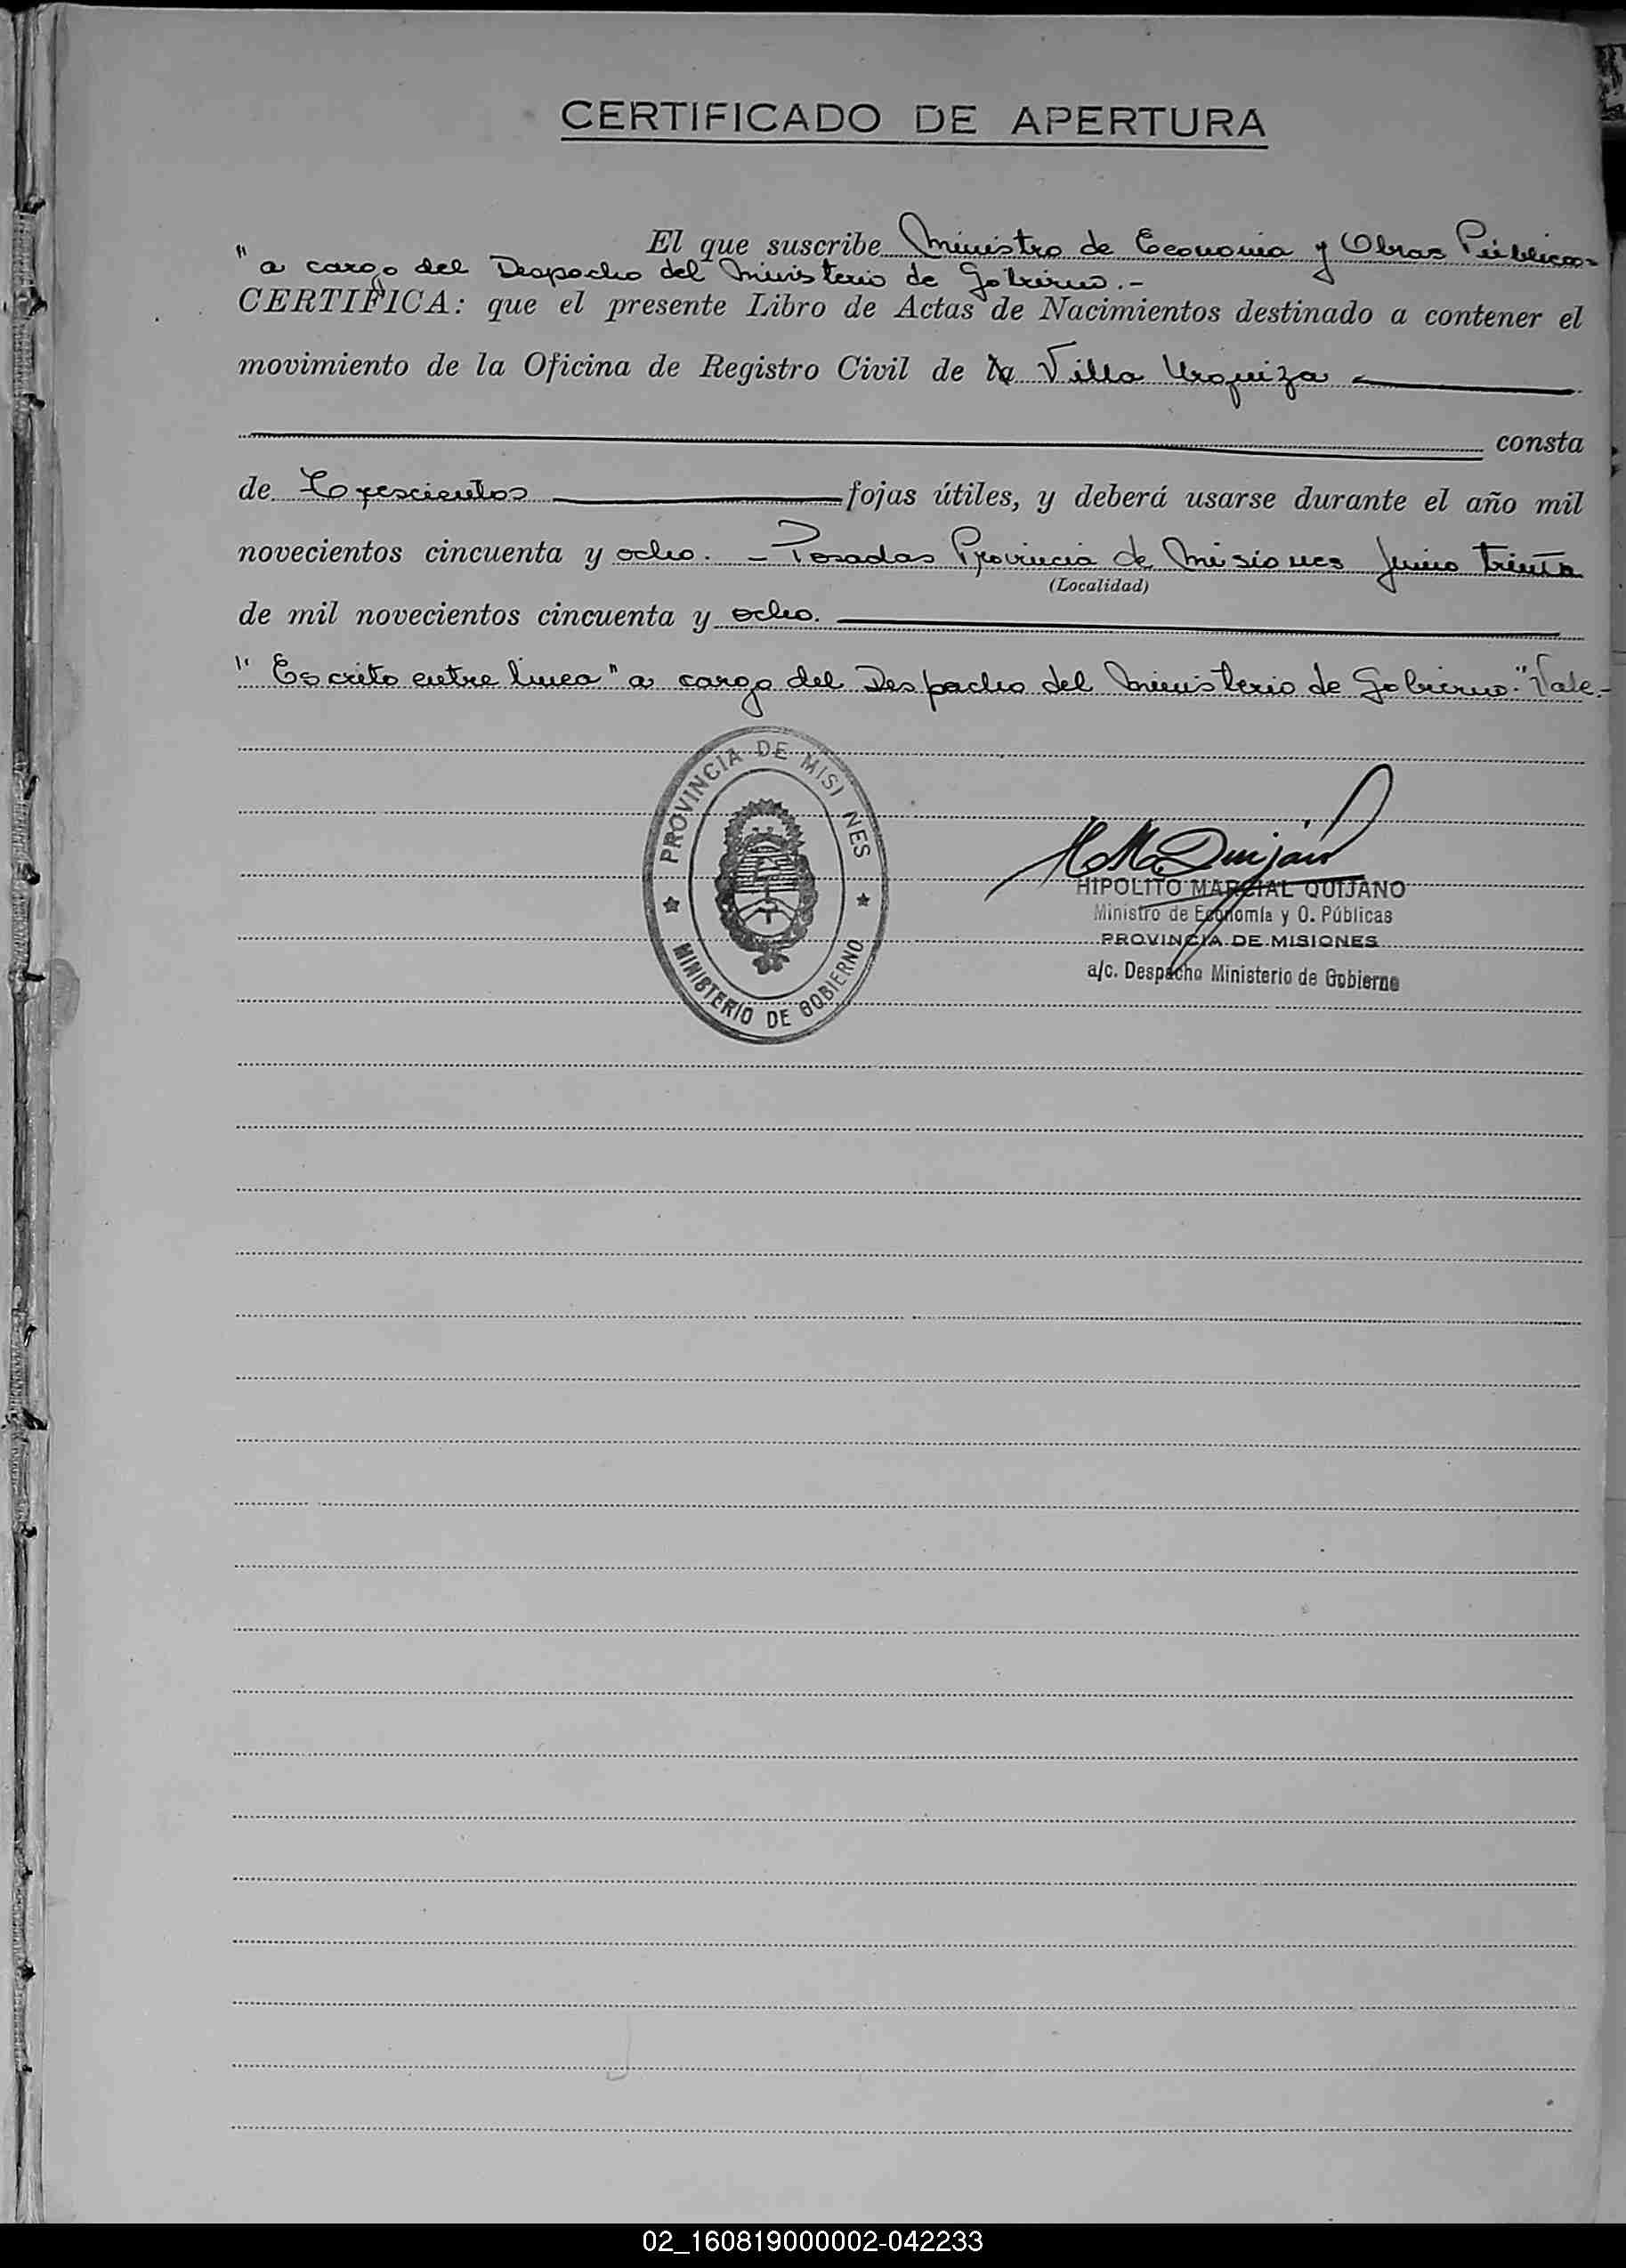 CERTIFICADO DE APERTURA
El que suscribe Ministro de Economia y Obras Públicas-
"a cargo del Despacho del Ministerio de Gobierno.-
CERTIFICA: que el presente Libro de Actas de Nacimientos destinado a contener el
movimiento de la Oficina de Registro Civil de la Villa Urquiza
consta
de Trescientos fojas útiles, y deberá usarse durante el año mil
novecientos cincuenta y ocho. - Posadas Provincia de Misiones Junio treinta
(Localidad)
de mil novecientos cincuenta y ocho.
"Escrito entre linea" a cargo del Despacho del Ministerio de Gobierno." Vale.-
PROVINCIA DE MISI NES
MINISTERIO DE GOBIERNO
HIPOLITO MARCIAL QUIJANO
Ministro de Economía y O. Públicas
PROVINCIA DE MISIONES
a/c. Despacho Ministerio de Gobierno
02_160819000002-042233